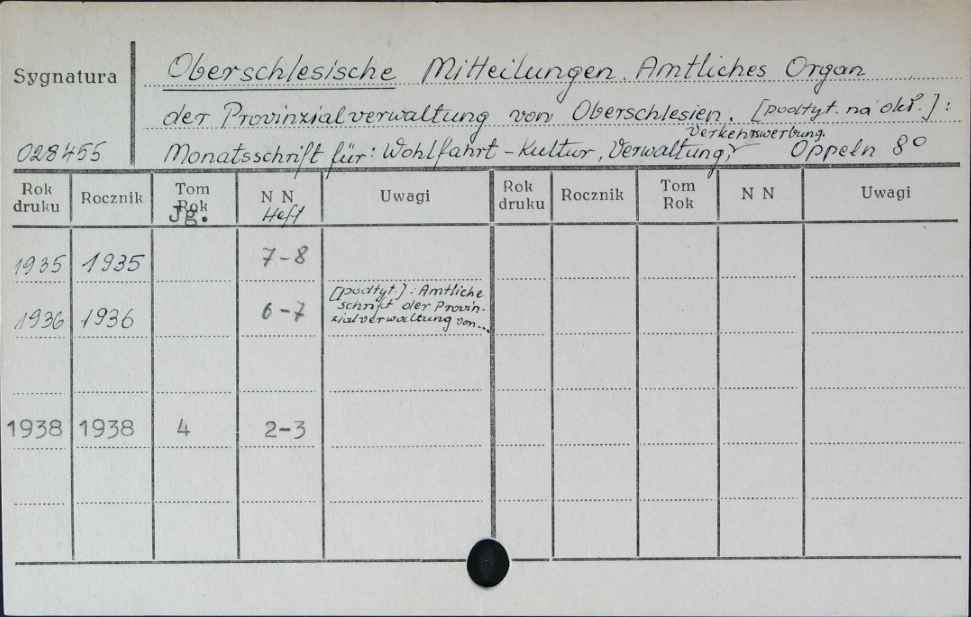 Sygnatura
Oberschlesische Mitteilungen. Amtliches Organ
der Provinzialverwaltung von Oberschlesien. [podtyt. na okł.]:
Verkehrswerbung.
028455 Monatsschrift für: Wohlfahrt - Kultur, Verwaltung, Oppeln 8°
Rok druku Rocznik Tom Rok Jg. N N Heft Uwagi Rok druku Rocznik Tom Rok N N Uwagi
1935 1935 7-8
1936 1936 6-7 [podtyt.]: Amtliche
schrift der Provin-
zialverwaltung von...
1938 1938 4 2-3